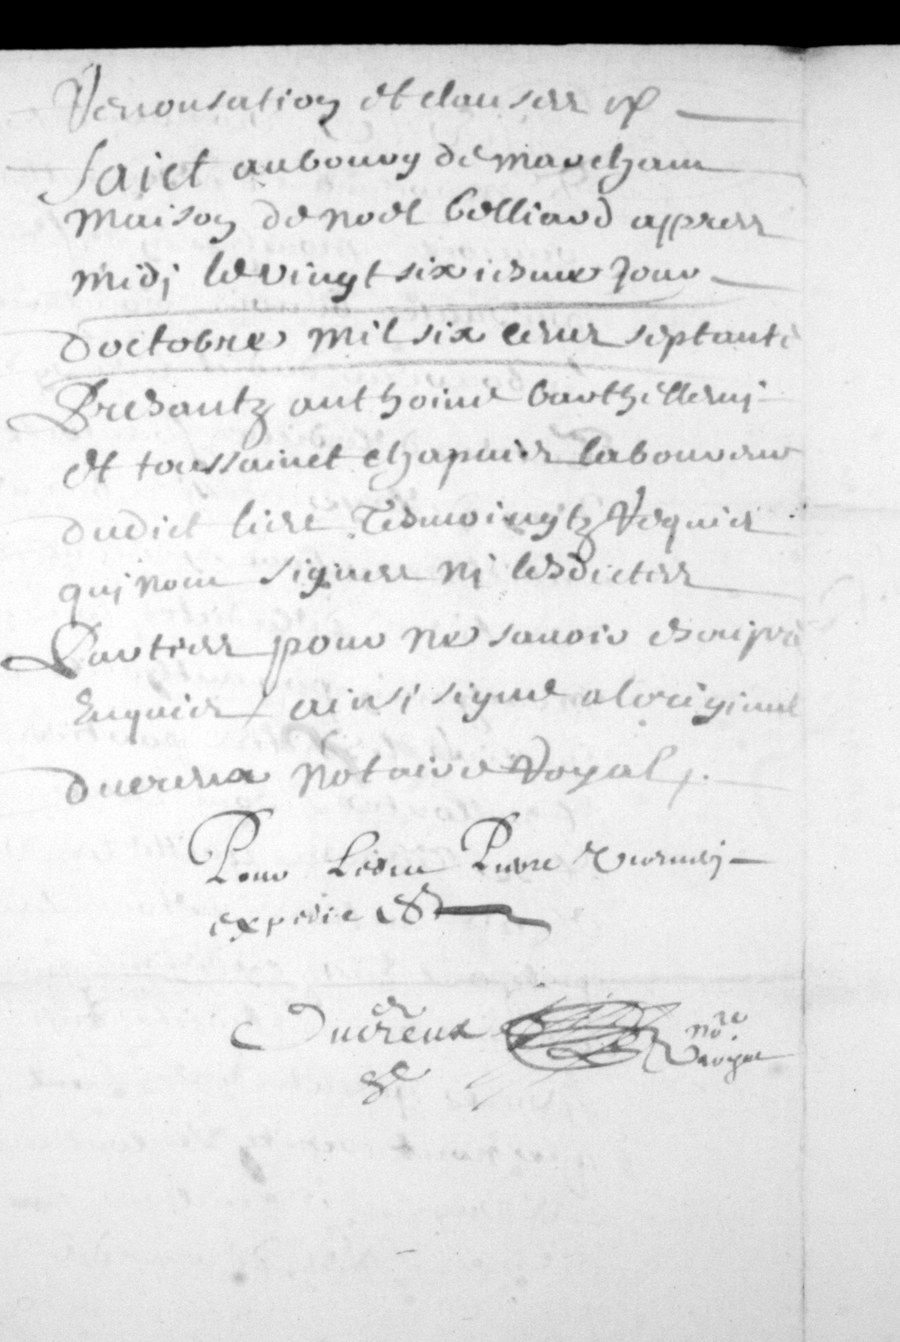 Renonsation et clauses &
Faict au bourg de marcham
maison de noel belliard appres
midj le vingt sixiesme jour
doctobre mil six cens septante
Presantz anthoine barthellemj
et toussainct chapuis laboureur
dudict lieu Tesmoingtz Requis
quj nont signes nj lesdictes
Parties pour ne savoir escripre
Enquis ainsi signé a loriginal
ducreux notaire Royal
Pour Ledit Pierre
expedié
Ducreux no.re
Royal